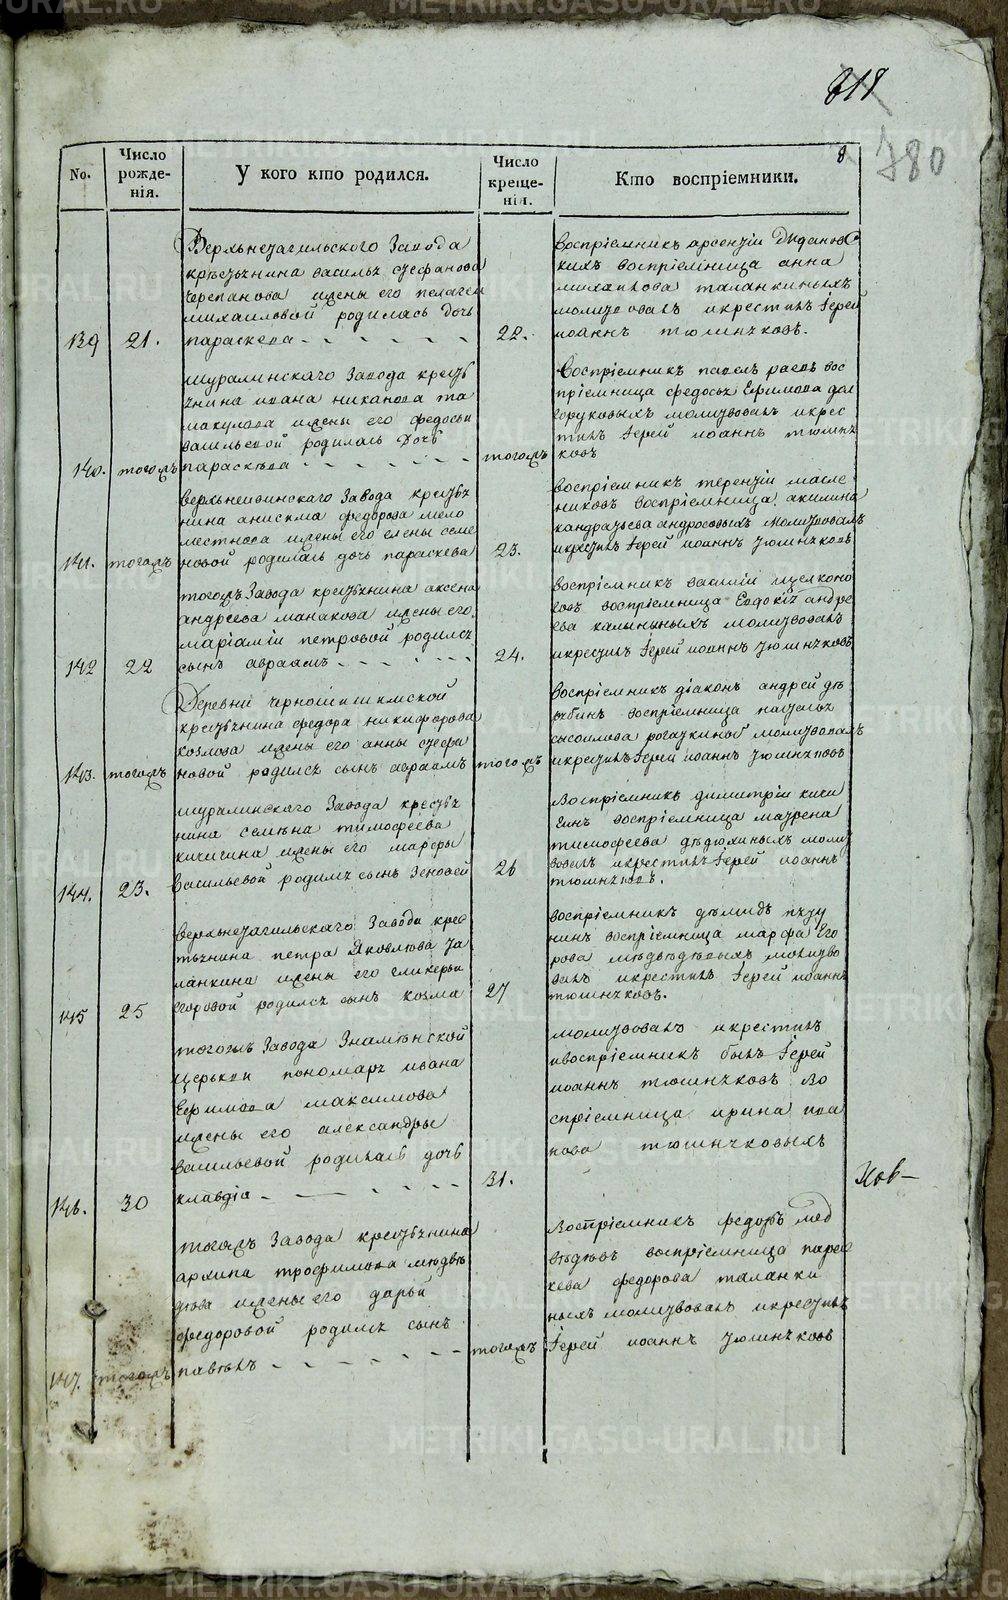 METRIKI.GASO-URAL.RU
818
780
8
No.
Число рожденія.
У кого кто родился.
Число крещенія.
Кто воспріемники.
Верхьнетагильского Завода
кръстьянина василья стефанова
Черепанова жены его пелагеи
михаиловой родилась дочь
139 21. параскева 22.
воспріемникъ арсентіи
кихъ воспріемница анна
михаилова таланкиныхъ
молитвовалъ икрестилъ Іерей
иоаннъ тюшняковъ.
шуралинскаго Завода кресть
янина ивана никанова та
макулова жены его федосьи
васильевой родилась дочь
140. тогожъ параскева тогожъ
Воспріемникъ павелъ раевъ вос
пріемница федосья Ефимова дол
горуковыхъ молитвовалъ икрес
тилъ Іерей иоаннъ тюшня
ковъ
верхьнеивинскаго Завода крестья
нина анисима федорова мело
местнова жены его елены семе
141. тогожъ новой родилась дочь параскева 23.
воспріемникъ терентіи масле
никовъ воспріемница акилина
кандратьева андросовыхъ молитвовалъ
икрестилъ Іерей иоаннъ тюшняковъ
тогожъ Завода крестьянина аксена
андреева манакова жены его
маріаміи петровой родился
142 22 сынъ авраамъ 24.
воспріемникъ василіи щелконо
говъ воспріемница Евдокія андре
ева калининыхъ молитвовалъ
икрестилъ Іерей иоаннъ тюшняковъ
Деревни черношишимской
крестьянина федора никифорова
козлова жены его анны стефа
143. тогожъ новой родился сынъ авраамъ тогожъ
воспріемникъ діаконъ андрей дя
гбинъ воспріемница наталья
сысоилова рогаткиной молитвовалъ
икрестилъ Іерей иоаннъ тюшняковъ
шуралинскаго Завода крестья
нина семена тимофеева
кичигина жены его марфы
144. 23. васильевой родился сынъ Зеновей 26
воспріемникъ димитріи кичи
гинъ воспріемница маурена
тимофеева дъдюхиныхъ молит
вовалъ икрестилъ Іерей иоаннъ
тюшняковъ.
верхьнетагильскаго Завода крес
тьянина петра Яковлева та
ланкина жены его гликерьи
145 25 егоровой родился сынъ козма 27
воспріемникъ демидъ пузу
нинъ воспріемница марфа Его
рова медведевыхъ молитво
валъ икрестилъ Іерей иоаннъ
тюшняковъ.
тогожъ Завода Знаменской
церькви пономаря ивана
Ефимова максимова
жены его александры
васильевой родилась дочь
146. 30 клавдіа 31.
молитвовалъ икрестилъ
ивоспріемникъ былъ Іерей
иоаннъ тюшняковъ во
спріемница ирина ива
нова тюшняковыхъ
тогожъ Завода крестьянина
архипа трофимова медве
дева жены его дарьи
федоровой родился сынъ
147. тогожъ павелъ тогожъ
воспріемникъ федоръ мед
ведевъ воспріемница парас
кева федорова таланки
ныхъ молитвовалъ икрестилъ
Іерей иоаннъ тюшняковъ